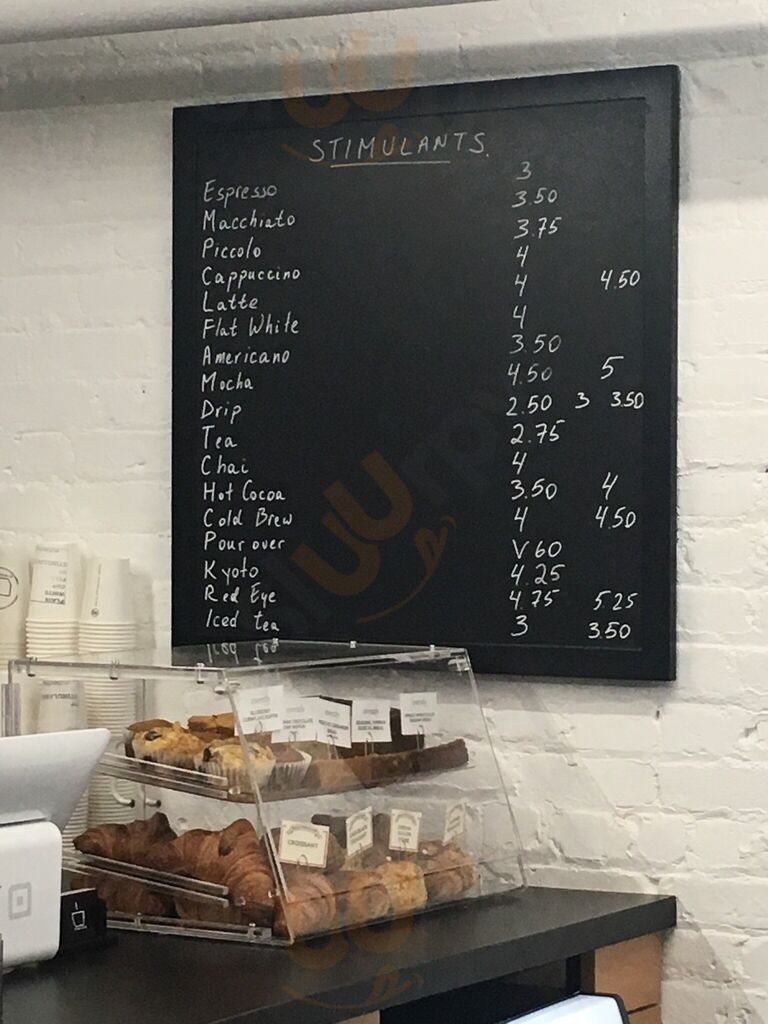 STIMULANTS.
Espresso 3
Macchiato 3.50
Piccolo 3.75
Cappuccino 4
Latte 4 4.50
Flat White 4
Americano 3.50
Mocha 4.50 5
Drip 2.50 3 3.50
Tea 2.75
Chai 4
Hot Cocoa 3.50 4
Cold Brew 4 4.50
Pour over V60
Kyoto 4.25
Red Eye 4.75 5.25
Iced tea 3 3.50
CROISSANT